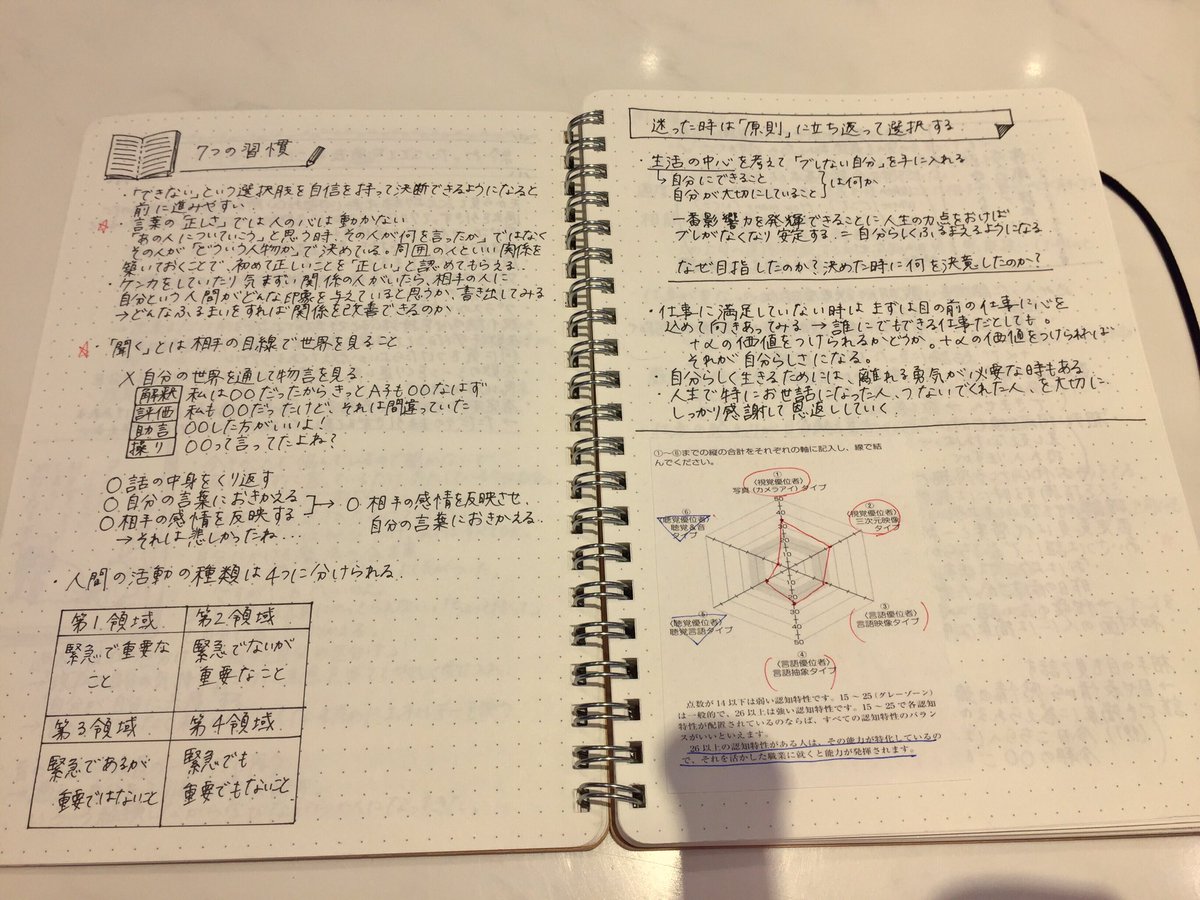 7つの習慣
・「できない」という選択肢を自信を持って決断できるようになると
前に進みやすい
☆・言葉の「正しさ」では人の心は動かない
「あの人についていこう」と思う時、その人が何を言ったか」ではなく
その人が「どういう人物か」で決めている。周囲の人といい関係を
築いておくことで、初めて正しいことを「正しい」と認めてもらえる.
・ケンカをしていたり気まずい関係の人がいたら、相手の人に
自分という人間がどんな印象を与えていると思うか、書き出してみる
→どんなふるまいをすれば関係を改善できるのか
☆・「聞く」とは相手の目線で世界を見ること
X 自分の世界を通して物言を見る
解釈 私は〇〇だったからきっとA子も〇〇なはず
評価 私も〇〇だったけど、それは間違っていた
助言 〇〇した方がいいよ!
操り 〇〇って言ってたよね?
〇 話の中身をくり返す
〇 自分の言葉におきかえる
〇 相手の感情を反映する
→それは悲しかったね...
→ 〇 相手の感情を反映させ、
自分の言葉におきかえる
・人間の活動の種類は4つに分けられる
第1.領域 第2.領域
緊急で重要な
こと
緊急でないが
重要なこと
第3領域 第4領域
緊急であるが
重要ではないこと
緊急でも
重要でもないこと
迷った時は「原則」に立ち返って選択する
・生活の中心を考えて「ブレない自分」を手に入れる
↳自分にできること
自分が大切にしていること
は何か
一番影響力を発揮できることに人生の力点をおけば
ブレがなくなり安定する.=自分らしくふるまえるようになる
なぜ目指したのか?決めた時に何を決意したのか?
・仕事に満足していない時はまずは目の前の仕事に心を
込めて向きあってみる → 誰にでもできる仕事だとしても。
+αの価値をつけられるかどうか。+αの価値をつけられれば
それが自分らしさになる。
・自分らしく生きるためには、離れる勇気が必要な時もある
・人生で特にお世話になった人、つないでくれた人、を大切に
しっかり感謝して恩返ししていく
①~⑥までの縦の合計をそれぞれの軸に記入し、線で結
んでください。
①
〈視覚優位者〉
写真(カメラアイ)タイプ
②
〈視覚優位者〉
三次元映像
タイプ
③
〈言語優位者〉
言語映像タイプ
④
〈言語優位者〉
言語抽象タイプ
⑤
〈聴覚優位者〉
聴覚言語タイプ
⑥
〈聴覚優位者〉
聴覚&音
タイプ
50
40
30
20
10
10
20
30
40
50
点数が14以下は弱い認知特性です。15~25(グレーゾーン)
は一般的で、26以上は強い認知特性です。15~25で各認知
特性が配置されているのならば、すべての認知特性のバラン
スがいいといえます。
26以上の認知特性がある人は、その能力が特化しているの
で、それを活かした職業に就くと能力が発揮されます。